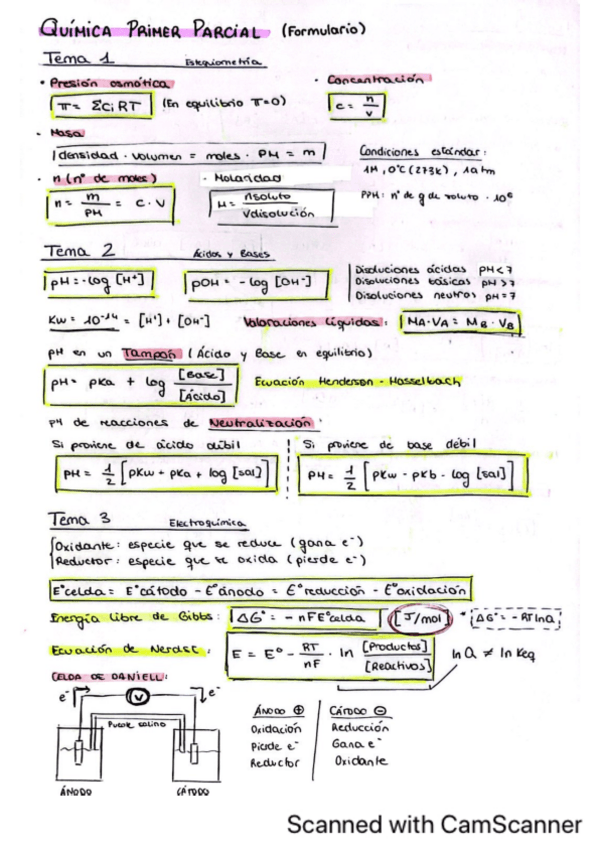 QUÍMICA PRIMER PARCIAL (Formulario)
Tema 1 Estequiometría
· Presión osmótica
π = ΣCi RT (En equilibrio π=0)
· Concentración
c = n/v
· Masa
densidad · volumen = moles · PM = m
Condiciones estándar:
1M, 0°C (273K), 1atm
· n (nº de moles)
n = m/PM = c · v
· Molaridad
M = nsoluto/Vdisolución
PPM: nº de g de soluto · 10⁶
Tema 2 Ácidos y Bases
pH = -log [H⁺]
pOH = - log [OH⁻]
Disoluciones ácidas pH<7
Disoluciones básicas pH>7
Disoluciones neutras pH=7
Kw = 10⁻¹⁴ = [H⁺] · [OH⁻]
Valoraciones líquidas: MA·VA = MB·VB
pH en un Tampón (Ácido y Base en equilibrio)
pH = pKa + log [Base]/[Ácido]
Ecuación Henderson - Hasselbach
pH de reacciones de Neutralización:
Si proviene de ácido débil
pH = 1/2 [pKw + pKa + log [sal]]
Si proviene de base débil
pH = 1/2 [pKw - pKb - log [sal]]
Tema 3 Electroquímica
Oxidante: especie que se reduce (gana e⁻)
Reductor: especie que se oxida (pierde e⁻)
E°celda = E°cátodo - E°ánodo = E°reducción - E°oxidación
Energía libre de Gibbs: ΔG° = - nFE°celda [J/mol] * ΔG° = - RT lnQ
Ecuación de Nerdst: E = E° - RT/nF · ln [Productos]/[Reactivos]
ln Q ≠ ln Keq
CELDA DE DANIELL:
e⁻ V e⁻
Puente salino
ÁNODO CÁTODO
ÁNODO ⊕
Oxidación
Pierde e⁻
Reductor
CÁTODO ⊖
Reducción
Gana e⁻
Oxidante
Scanned with CamScanner